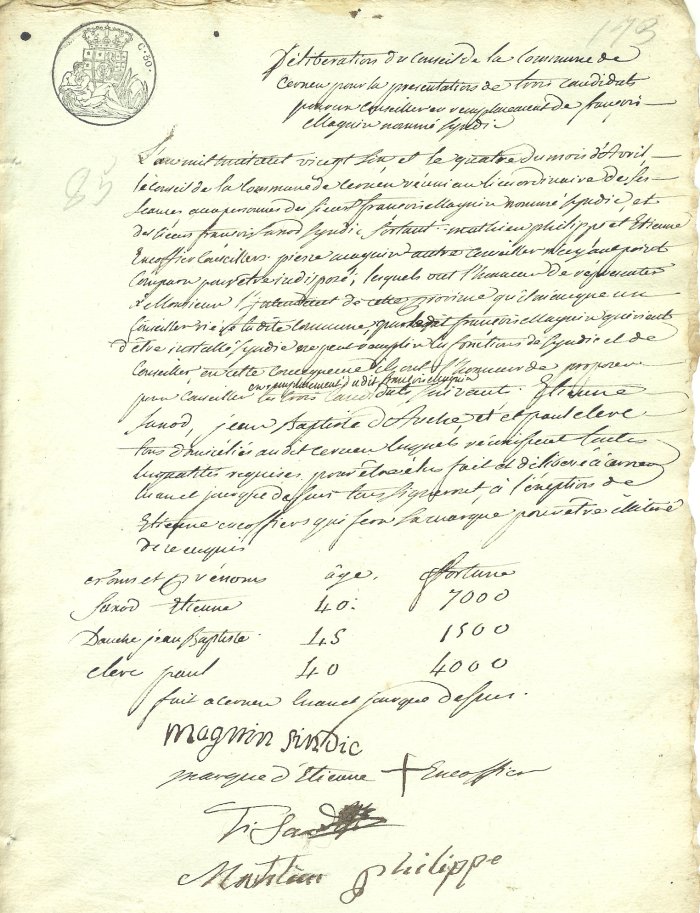 173
C. 50.
Délibération du Conseil de la Commune de
Cernex pour la présentation de trois candidats
pour un Conseiller en remplacement de françois
Magnin nommé Syndic
85
L'an mil huit cent vingt six et le quatre du mois d'Avril,
le Conseil de la Commune de Cernex réuni au lieu ordinaire de ses
séances aux personnes des sieurs françois Magnin nommé Syndic et
des sieurs françois Sanod Syndic Sortant, mathieu philippe et Etienne
Encoffier Conseillers, pierre magnin autre conseiller n'ayant point
Comparu pour être indisposé, lesquels ont l'honneur de représenter
à Monsieur l'Intendant de cette province qu'il manque un
Conseiller dite Commune, françois Magnin qui vient
d'être installé Syndic ne peut remplir les fonctions de Syndic et de
Conseiller, en cette conséquence ils ont l'honneur de proposer
en remplacement dudit françois Magnin
pour Conseiller les trois candidats suivants. Etienne
Sanod, jean Baptiste d'Avche, et paul clerc
tous domiciliés audit cernex lesquels réunissent toutes
les qualités requises pour être élus fait et délibéré à Cernex
l'an et jour que dessus tous signeront, à l'éxeption de
Etienne encoffier qui fera sa marque pour être illitéré
de ce enquis
Noms et prénoms âge. fortune
Sanod Etienne 40. 7000
Davche jean Baptiste. 45 1500
clerc paul 40 4000
fait à cernex l'an et jour que dessus.
magnin sindic
marque d'Etienne + Encoffier
philippe